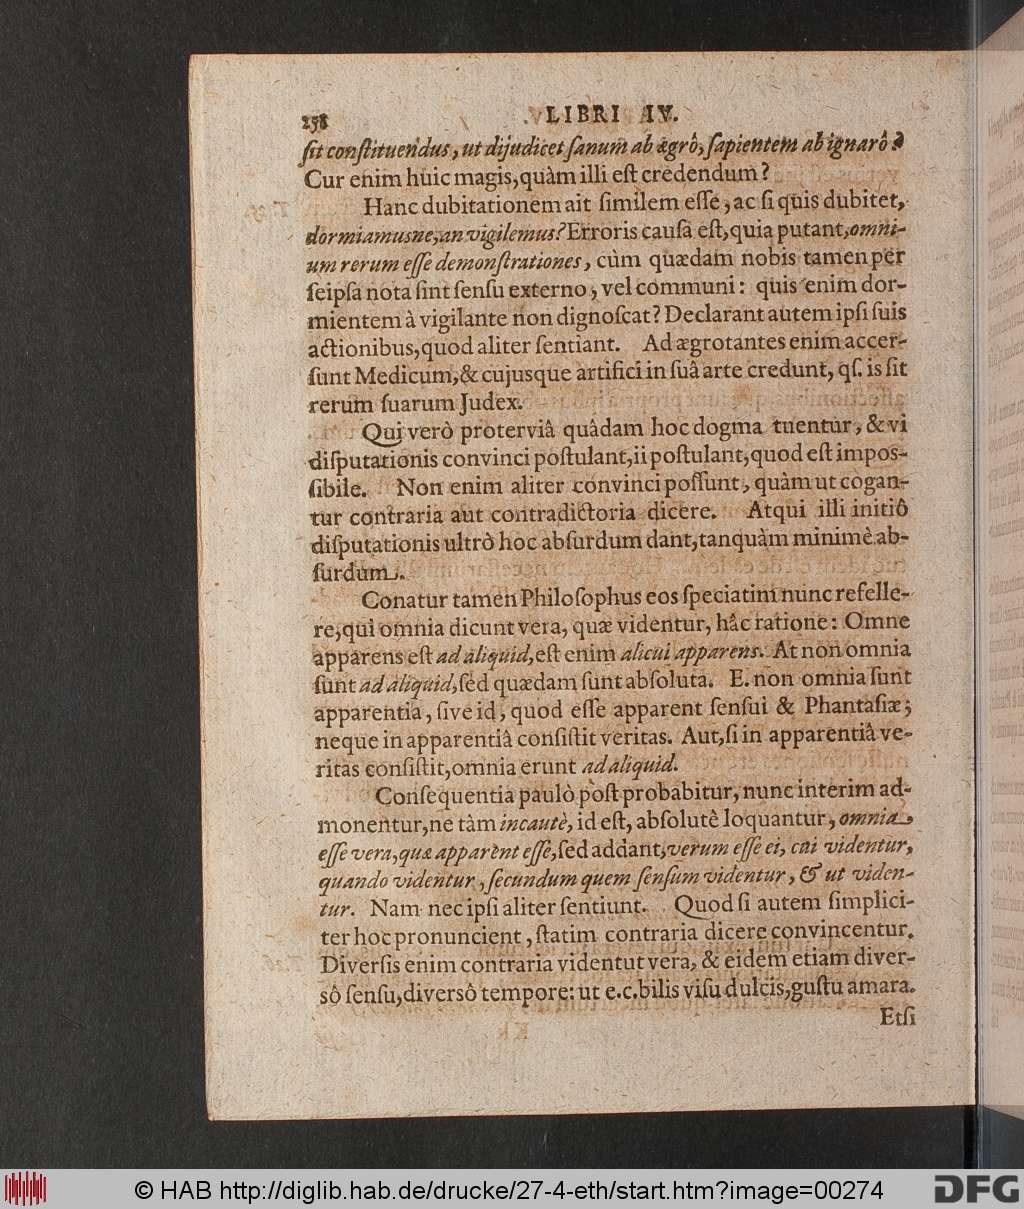 258 LIBRI IV.
ſit conſtituendus, ut dijudicet ſanum ab ægrô, ſapientem ab ignarô?
Cur enim huic magis, quàm illi eſt credendum?
Hanc dubitationem ait ſimilem eſſe, ac ſi quis dubitet,
dormiamusne, an vigilemus? Erroris cauſa eſt, quia putant, omni-
um rerum eſſe demonſtrationes, cùm quædam nobis tamen per
ſeipſa nota ſint ſenſu externo, vel communi: quis enim dor-
mientem à vigilante non dignoſcat? Declarant autem ipſi ſuis
actionibus, quod aliter ſentiant. Ad ægrotantes enim accer-
ſunt Medicum, & cujusque artifici in ſuâ arte credunt, qſ. is ſit
rerum ſuarum Judex.
Qui verò proterviâ quâdam hoc dogma tuentur, & vi
diſputationis convinci poſtulant, ii poſtulant, quod eſt impoſ-
ſibile. Non enim aliter convinci poſſunt, quàm ut cogan-
tur contraria aut contradictoria dicere. Atqui illi initiô
diſputationis ultrò hoc abſurdum dant, tanquàm minimè ab-
ſurdum.
Conatur tamen Philoſophus eos ſpeciatim nunc refelle-
re, qui omnia dicunt vera, quæ videntur, hâc ratione: Omne
apparens eſt ad aliquid, eſt enim alicui apparens. At non omnia
ſunt ad aliquid, ſed quædam ſunt abſoluta. E. non omnia ſunt
apparentia, ſive id, quod eſſe apparent ſenſui & Phantaſiæ;
neque in apparentiâ conſiſtit veritas. Aut, ſi in apparentiâ ve-
ritas conſiſtit, omnia erunt ad aliquid.
Conſequentia paulò pòſt probabitur, nunc interim ad-
monentur, ne tàm incautè, id eſt, abſolutê loquantur, omnia
eſſe vera, quæ apparent eſſe, ſed addant, verum eſſe ei, cui videntur,
quando videntur, ſecundum quem ſenſum videntur, & ut viden-
tur. Nam nec ipſi aliter ſentiunt. Quod ſi autem ſimplici-
ter hoc pronuncient, ſtatim contraria dicere convincentur.
Diverſis enim contraria videntut vera, & eidem etiam diver-
sô ſenſu, diversô tempore: ut e.c. bilis viſu dulcis, guſtu amara.
Etſi
© HAB http://diglib.hab.de/drucke/27-4-eth/start.htm?image=00274
DFG